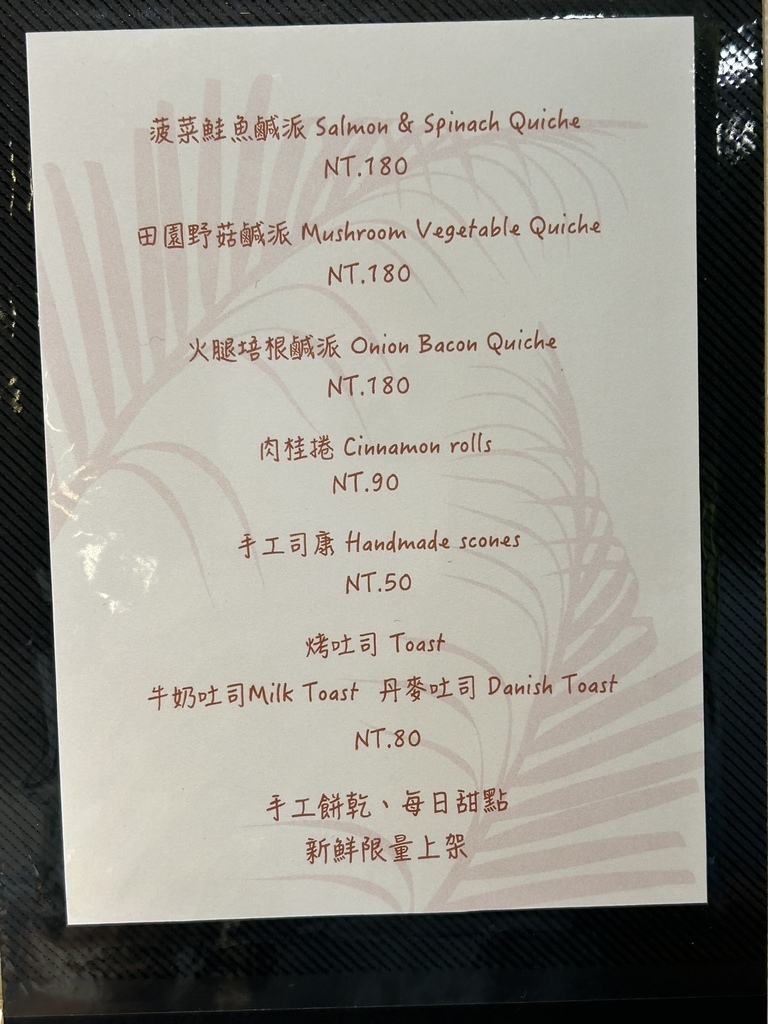 菠菜鮭魚鹹派 Salmon & Spinach Quiche
NT.180
田園野菇鹹派 Mushroom Vegetable Quiche
NT.180
火腿培根鹹派 Onion Bacon Quiche
NT.180
肉桂捲 Cinnamon rolls
NT.90
手工司康 Handmade scones
NT.50
烤吐司 Toast
牛奶吐司Milk Toast 丹麥吐司 Danish Toast
NT.80
手工餅乾、每日甜點
新鮮限量上架